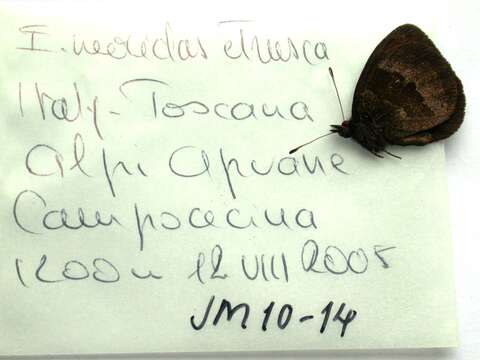 E. neoridas etrusca
Italy - Toscana
Alpi Apuane
Campocecina
1200m 12 VIII 2005
JM10-14